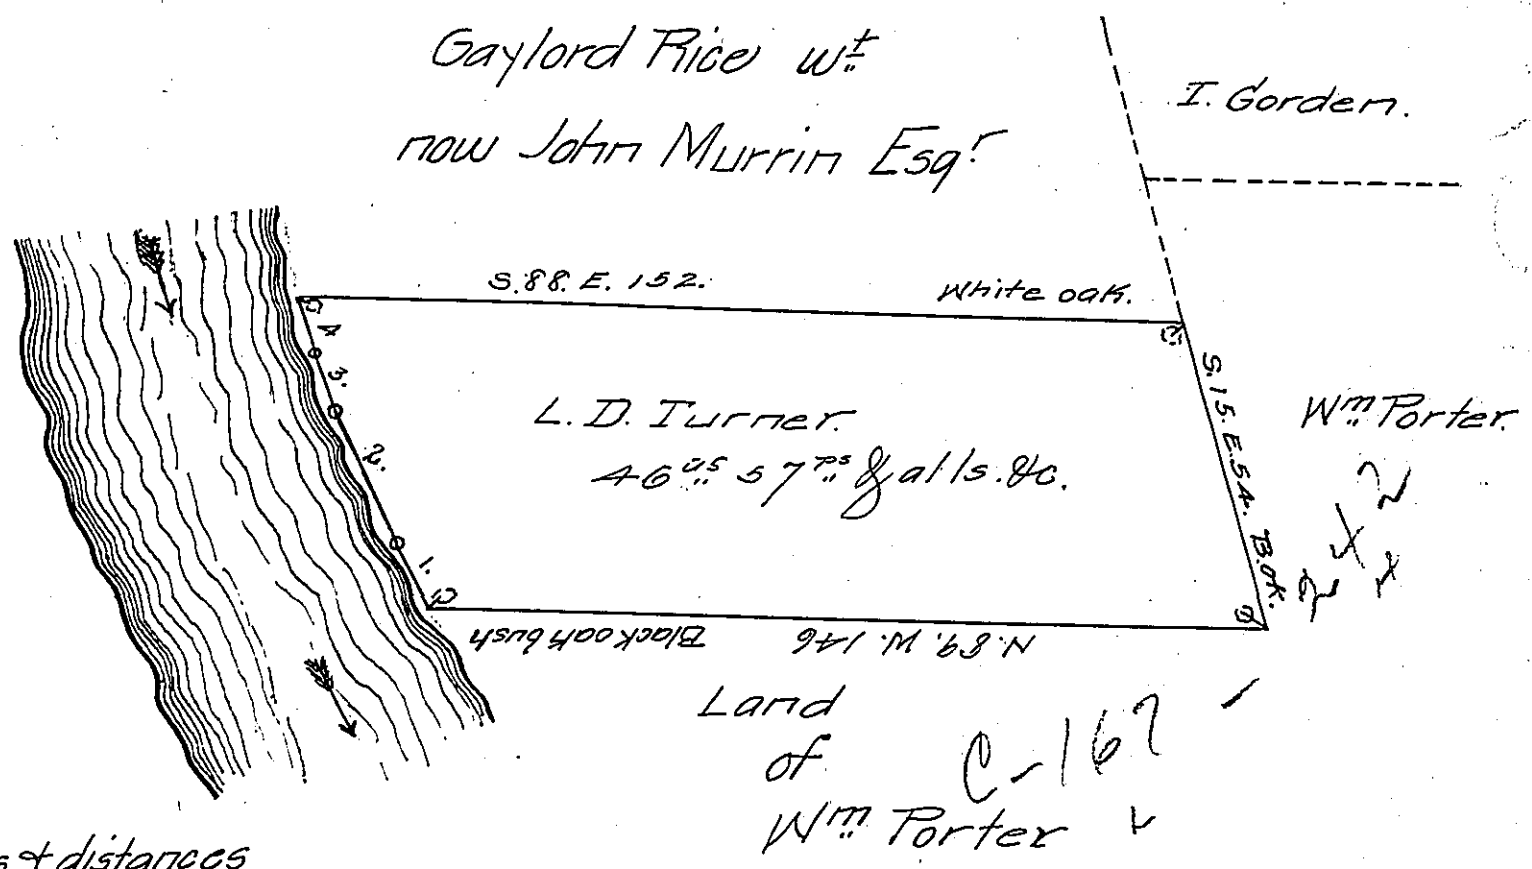 Gaylord Rice wt
now John Murrin Esqr
I. Gorden.
S. 88. E. 152. White oak.
4
3.
2.
1.
L. D. Turner.
46 as 57 ps & alls. &c.
S. 15. E. 54. B. ok.
Wm Porter.
N. 89. W. 146 Black oak bush
Land
of
Wm Porter
C-167
s & distances